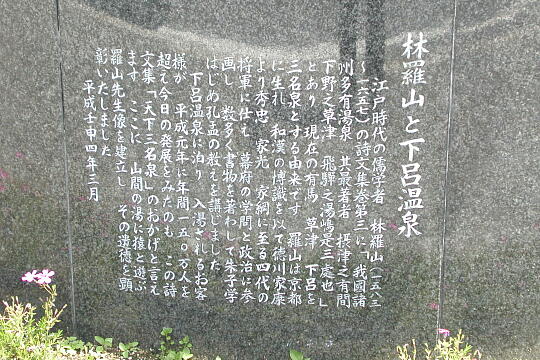 林羅山と下呂温泉
江戸時代の儒学者 林羅山(一五八三
〜一六五七)の詩文集巻第三に「我國諸
州多有湯泉 其最著者 摂津之有間
下野之草津 飛騨之湯嶋是三處也」
とあり 現在の有馬 草津 下呂を
三名泉とする由来です 羅山は京都
に生れ 和漢の博識を以て徳川家康
より秀忠 家光 家綱に至る四代の
将軍に仕え 幕府の学問と政治に参
画し 数多く書物を著わして朱子学
はじめ孔孟の教えを講じました
下呂温泉に泊り 入湯されるお客
様が 平成元年に年間一五〇万人を
超え今日の発展をみたのも この詩
文集「天下三名泉」のおかげと言え
ます ここに 山間の湯に猿と遊ぶ
羅山先生像を建立し その遺徳を顕
彰いたしました
平成壬申四年三月